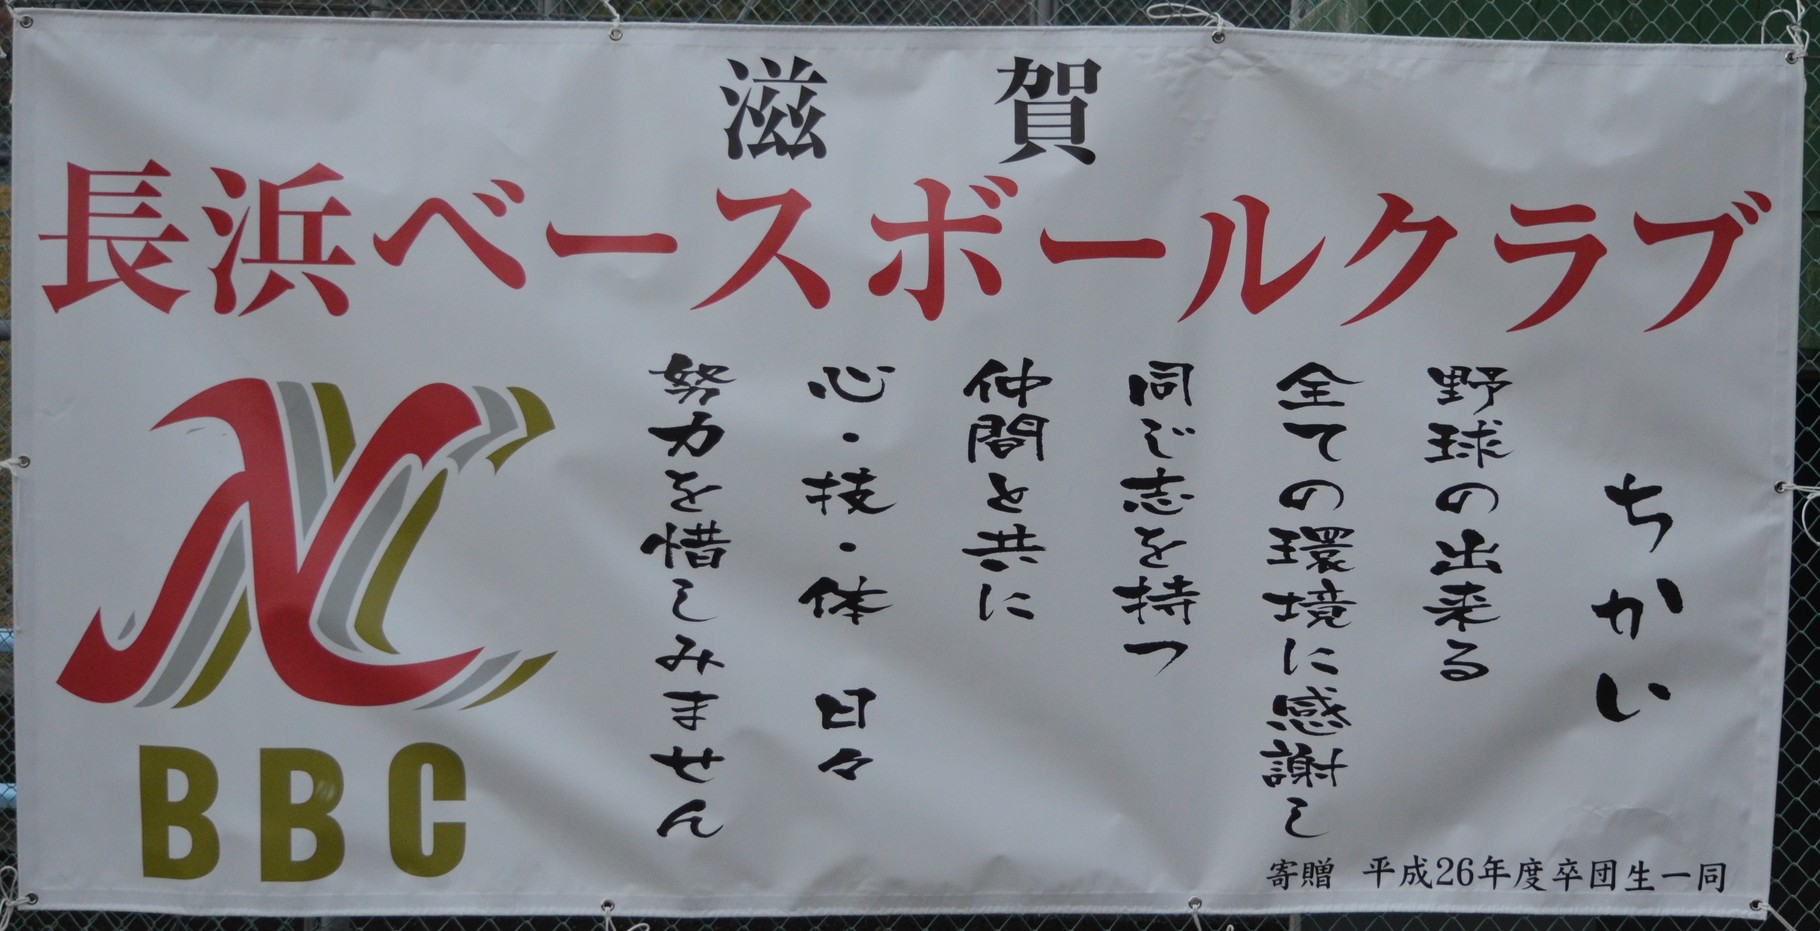 滋賀
長浜ベースボールクラブ
ちかい
野球の出来る
全ての環境に感謝し
同じ志を持つ
仲間と共に
心・技・体 日々
努力を惜しみません
N
BBC
寄贈 平成26年度卒団生一同